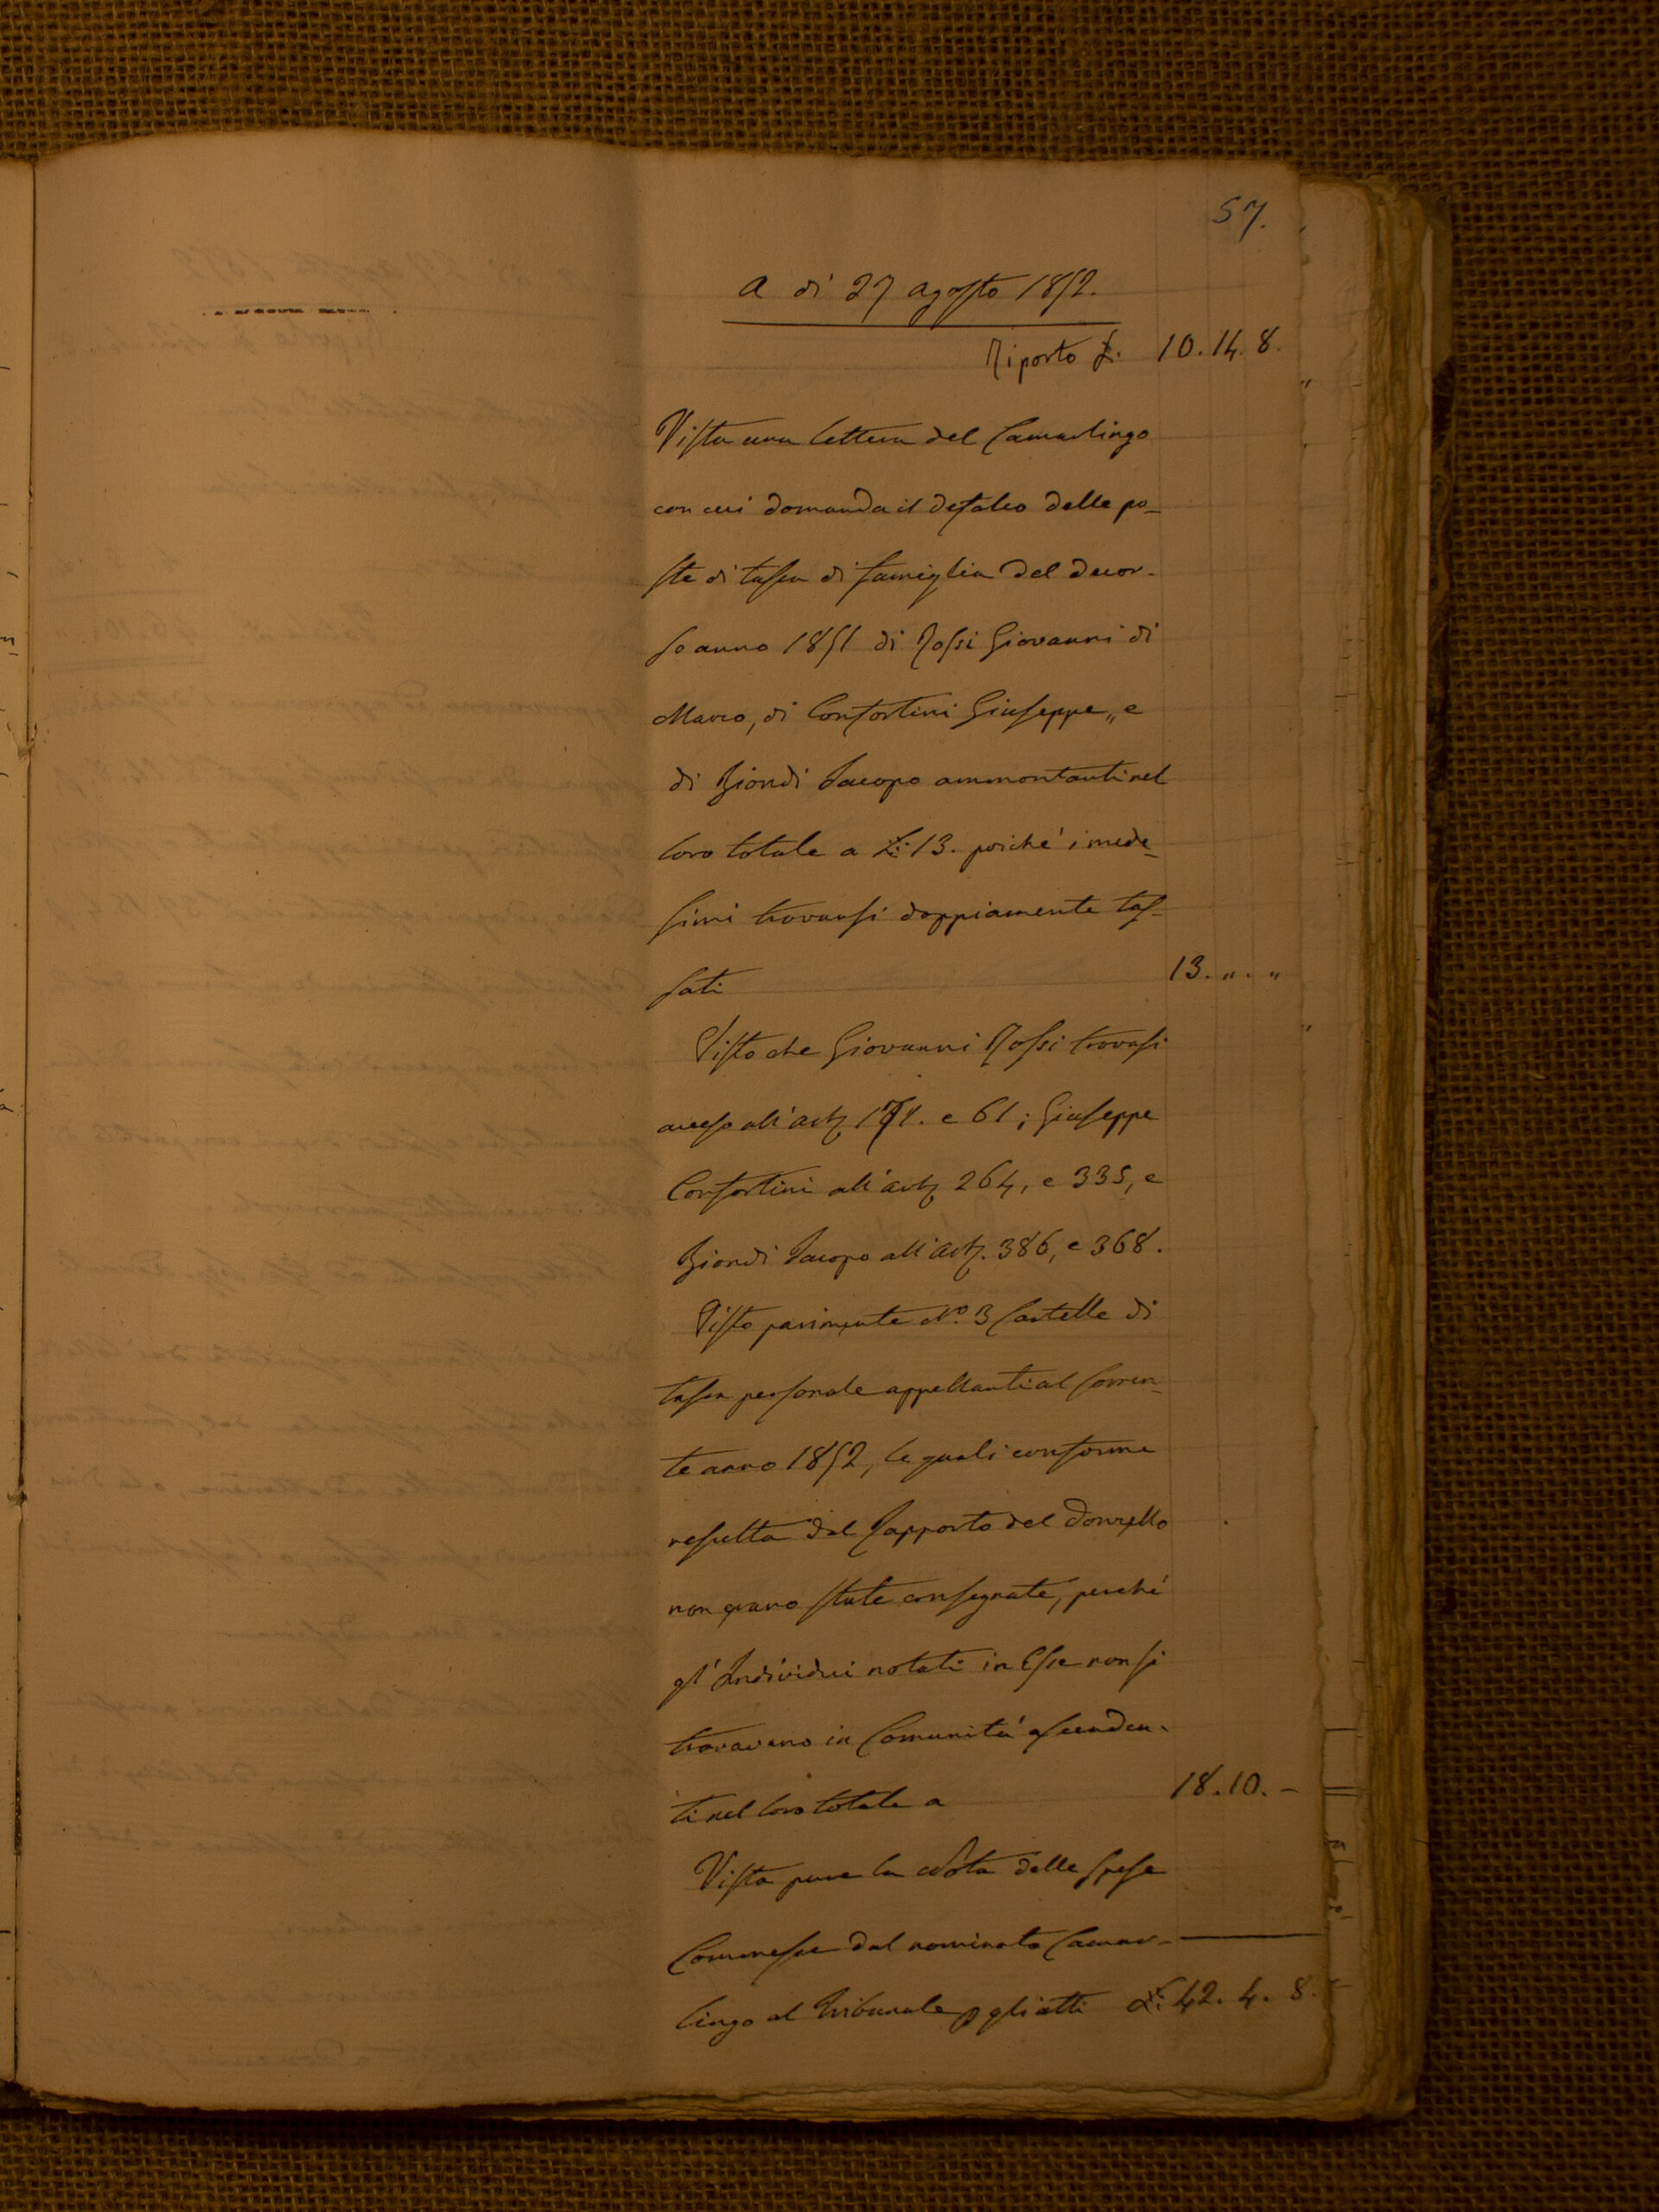 57.
A dì 27 agosto 1852.
Riporto £. 10.14.8.
Vista una lettera del Camarlingo
con cui domanda il defalco delle po-
ste di tassa di famiglia del decor-
so anno 1851 di Rossi Giovanni di
Marco, di Confortini Giuseppe,, e
di Biondi Iacopo ammontanti nel
loro totale a £: 13. poiché i mede-
simi trovansi doppiamente tas-
sati 13. ,, . ,,
Visto che Giovanni Rossi trovasi
acceso all'art. 171. e 61; Giuseppe
Confortini all'art. 264, e 335, e
Biondi Iacopo all'art. 386, e 368.
Viste parimente N.º 3 Cartelle di
tassa personale appellanti al corren-
te anno 1852, le quali conforme
resulta dal Rapporto del Donzello
non erano state consegnate, perché
gl'Individui notati in Esse non si
trovavano in Comunità ascenden-
ti nel loro totale a 18.10. -
Vista pure la Nota delle spese
Commesse dal nominato Camar-
lingo al Tribunale p gli atti £: 42. 4. 8.